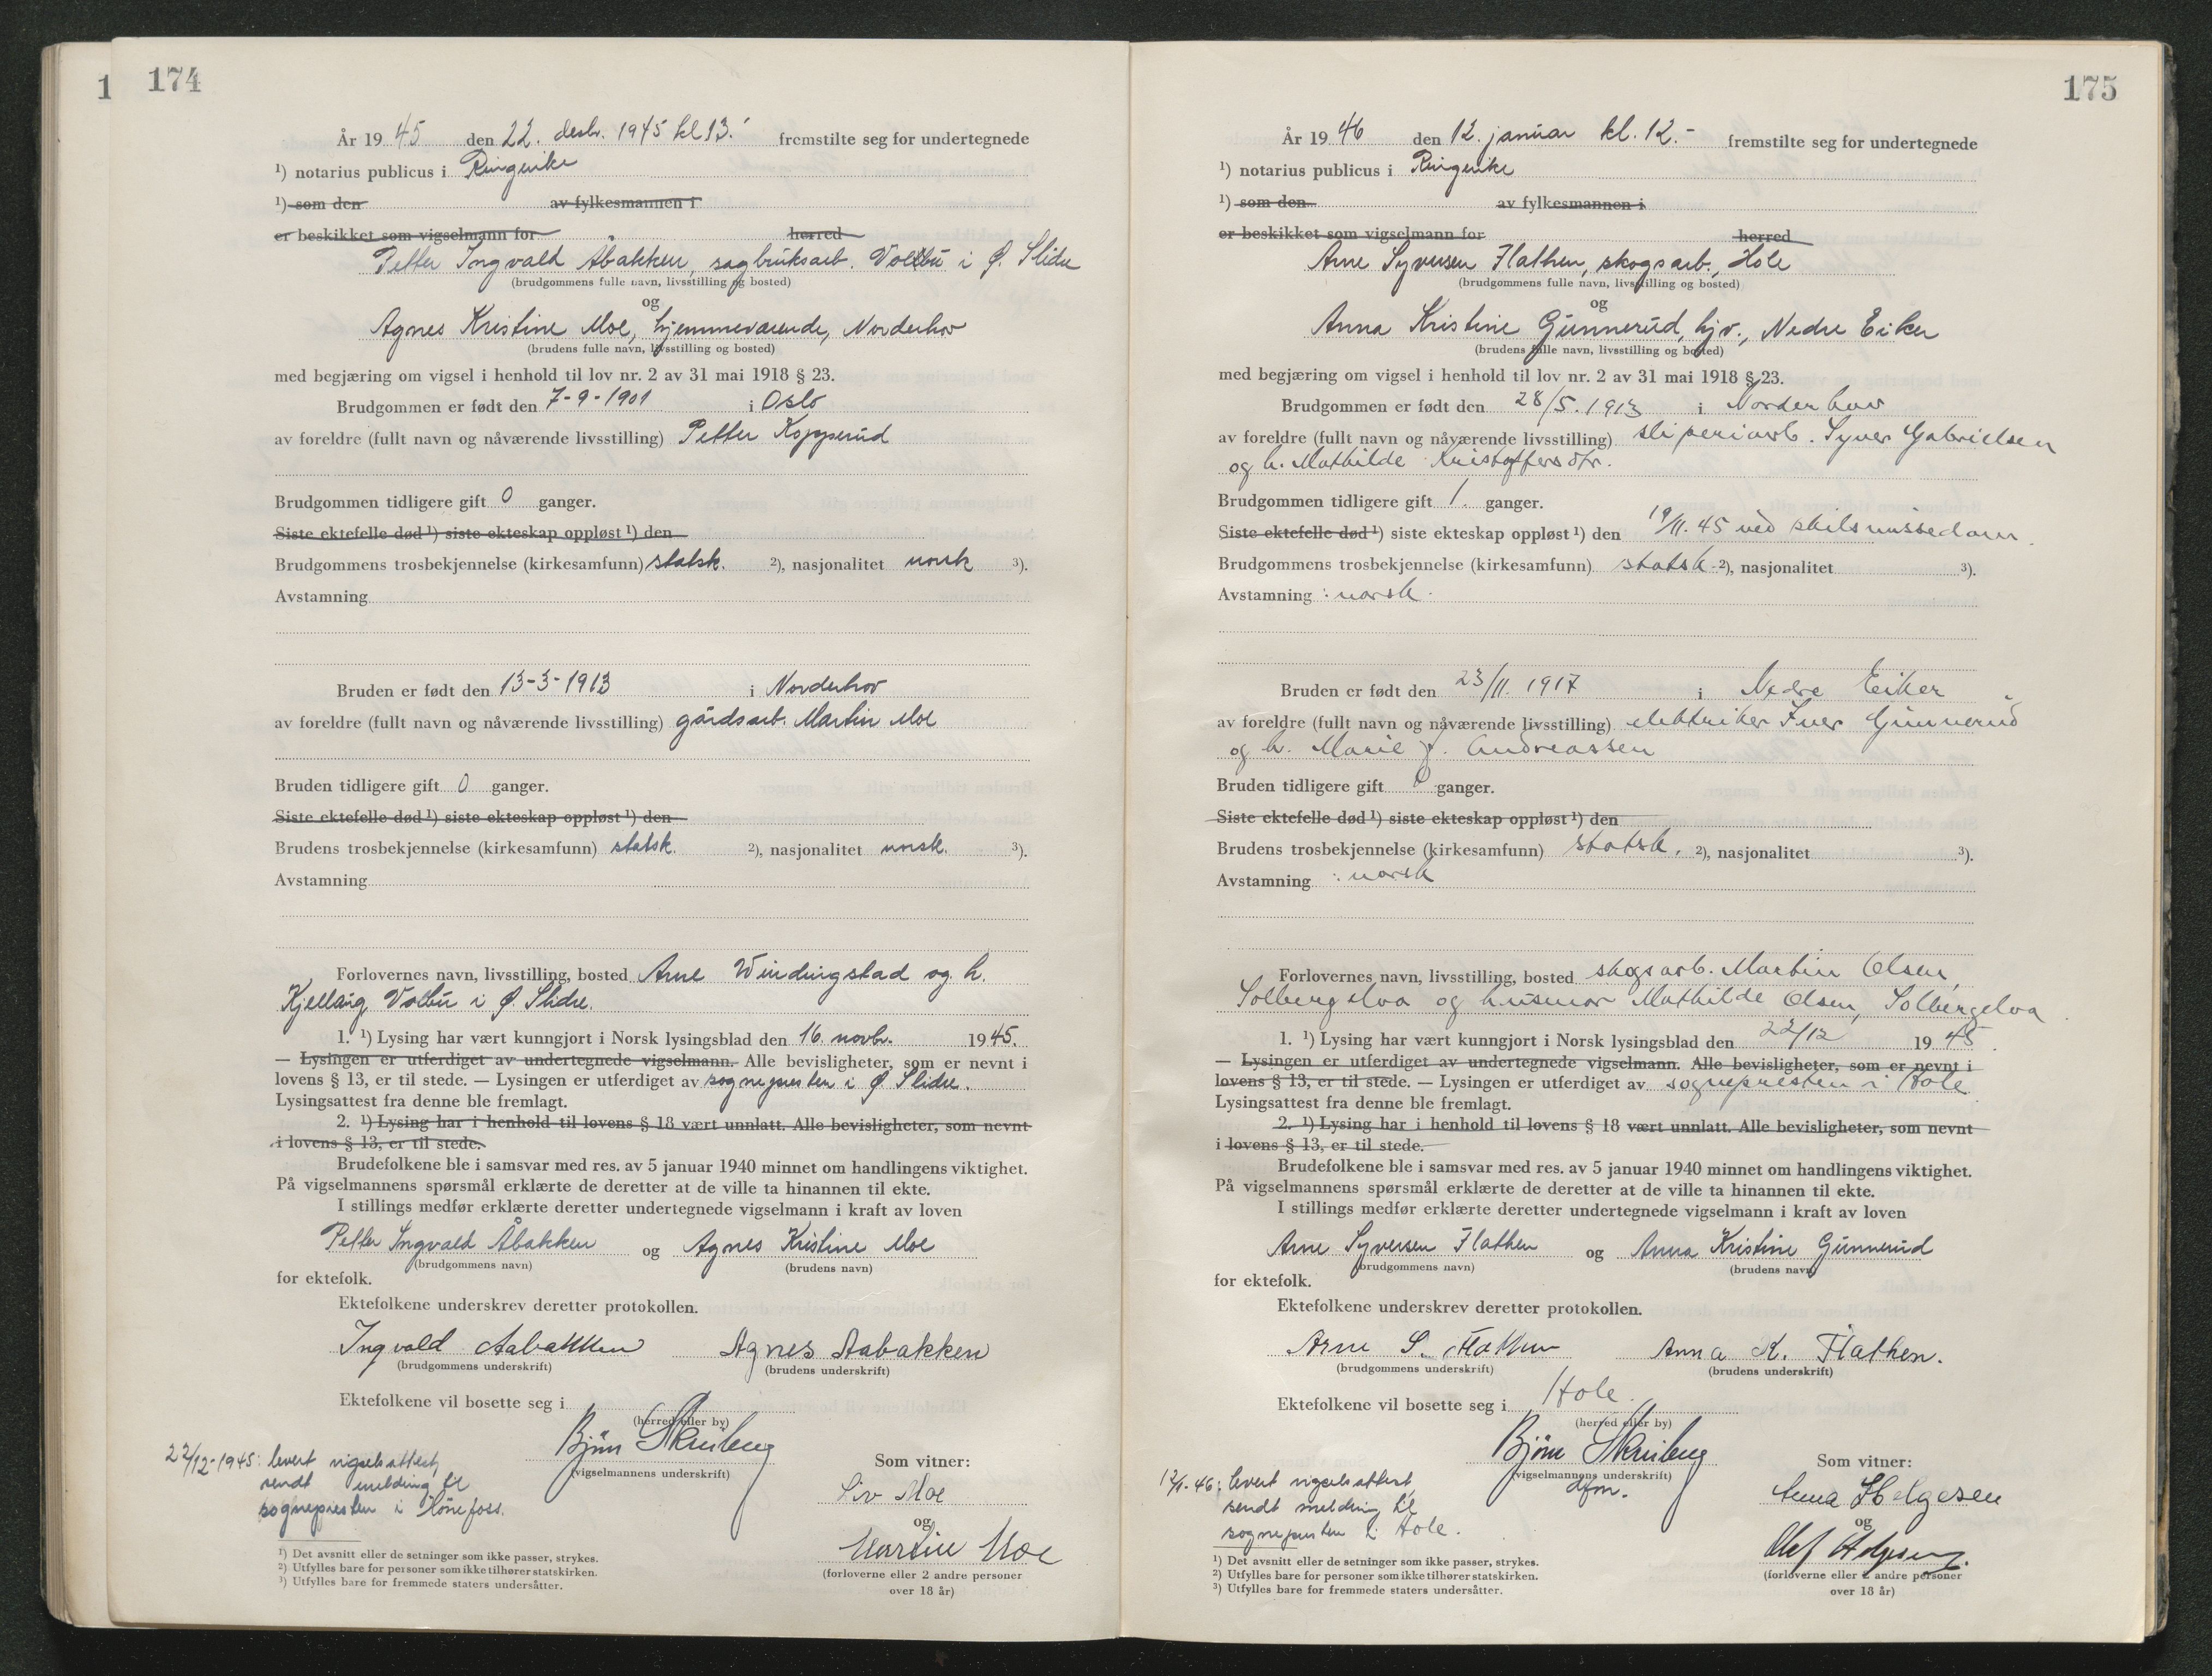 1 174
År 19 45 den 22. desbr. 1945 kl 13.- fremstilte seg for undertegnede
¹) notarius publicus i Ringerike
¹) som den av fylkesmannen i
er beskikket som vigselmann for herred
Petter Ingvald Åbakken, sagbruksarb. Volbu i Ø. Slidre
(brudgommens fulle navn, livsstilling og bosted)
og
Agnes Kristine Moe, hjemmeværende, Norderhov
(brudens fulle navn, livsstilling og bosted)
med begjæring om vigsel i henhold til lov nr. 2 av 31 mai 1918 § 23.
Brudgommen er født den 7-9-1901 i Oslo
av foreldre (fullt navn og nåværende livsstilling) Petter Kopperud
Brudgommen tidligere gift 0 ganger.
Siste ektefelle død ¹) siste ekteskap oppløst ¹) den
Brudgommens trosbekjennelse (kirkesamfunn) statsk. ²), nasjonalitet norsk ³).
Avstamning
Bruden er født den 13-3-1913 i Norderhov
av foreldre (fullt navn og nåværende livsstilling) gårdsarb. Martin Moe
Bruden tidligere gift 0 ganger.
Siste ektefelle død ¹) siste ekteskap oppløst ¹) den
Brudens trosbekjennelse (kirkesamfunn) statsk. ²), nasjonalitet norsk. ³).
Avstamning
Forlovernes navn, livsstilling, bosted Arne Windingstad og h.
Kjellaug Volbu i Ø. Slidre.
1. ¹) Lysing har vært kunngjort i Norsk lysingsblad den 16. novbr. 1945.
— Lysingen er utferdiget av undertegnede vigselmann. Alle bevisligheter, som er nevnt i
lovens § 13, er til stede. — Lysingen er utferdiget av sognepresten i Ø Slidre.
Lysingsattest fra denne ble fremlagt.
2. ¹) Lysing har i henhold til lovens § 18 vært unnlatt. Alle bevisligheter, som nevnt
i lovens § 13, er til stede.
Brudefolkene ble i samsvar med res. av 5 januar 1940 minnet om handlingens viktighet.
På vigselmannens spørsmål erklærte de deretter at de ville ta hinannen til ekte.
I stillings medfør erklærte deretter undertegnede vigselmann i kraft av loven
Petter Ingvald Åbakken og Agnes Kristine Moe
(brudgommens navn) (brudens navn)
for ektefolk.
Ektefolkene underskrev deretter protokollen.
Ingvald Aabakken Agnes Aabakken
(brudgommens underskrift) (brudens underskrift)
Ektefolkene vil bosette seg i
(herred eller by)
Bjørn Skruberg
(vigselmannens underskrift)
22/12-1945: levert vigselsattest,
sendt melding til
sognepresten i Hönefoss.
Som vitner:
Liv Moe
og
Martin Moe
(forloverne eller 2 andre personer
over 18 år)
¹) Det avsnitt eller de setninger som ikke passer, strykes.
²) Utfylles bare for personer som ikke tilhører statskirken.
³) Utfylles bare for fremmede staters undersåtter.
175
År 19 46 den 12. januar kl. 12.- fremstilte seg for undertegnede
¹) notarius publicus i Ringerike
¹) som den av fylkesmannen i
er beskikket som vigselmann for herred
Arne Syversen Flathen, skogsarb., Hole
(brudgommens fulle navn, livsstilling og bosted)
og
Anna Kristine Gunnerud, hjv., Nedre Eiker
(brudens fulle navn, livsstilling og bosted)
med begjæring om vigsel i henhold til lov nr. 2 av 31 mai 1918 § 23.
Brudgommen er født den 28/5. 1913 i Norderhov
av foreldre (fullt navn og nåværende livsstilling) sliperiarb. Syver Gabrielsen
og h. Mathilde Kristoffersdtr.
Brudgommen tidligere gift 1. ganger.
Siste ektefelle død ¹) siste ekteskap oppløst ¹) den 19/11. 45 ved skilsmissedom.
Brudgommens trosbekjennelse (kirkesamfunn) statsk. ²), nasjonalitet ³).
Avstamning : norsk.
Bruden er født den 23/11. 1917 i Nedre Eiker
av foreldre (fullt navn og nåværende livsstilling) elektriker Iver Gunnerud
og h. Marie f. Andreassen
Bruden tidligere gift 0 ganger.
Siste ektefelle død ¹) siste ekteskap oppløst ¹) den
Brudens trosbekjennelse (kirkesamfunn) statsk. ²), nasjonalitet ³).
Avstamning : norsk
Forlovernes navn, livsstilling, bosted skogsarb. Martin Olsen,
Solbergelva og husmor Mathilde Olsen, Solbergelva
1. ¹) Lysing har vært kunngjort i Norsk lysingsblad den 22/12 19 45.
— Lysingen er utferdiget av undertegnede vigselmann. Alle bevisligheter, som er nevnt i
lovens § 13, er til stede. — Lysingen er utferdiget av sognepresten i Hole
Lysingsattest fra denne ble fremlagt.
2. ¹) Lysing har i henhold til lovens § 18 vært unnlatt. Alle bevisligheter, som nevnt
i lovens § 13, er til stede.
Brudefolkene ble i samsvar med res. av 5 januar 1940 minnet om handlingens viktighet.
På vigselmannens spørsmål erklærte de deretter at de ville ta hinannen til ekte.
I stillings medfør erklærte deretter undertegnede vigselmann i kraft av loven
Arne Syversen Flathen og Anna Kristine Gunnerud
(brudgommens navn) (brudens navn)
for ektefolk.
Ektefolkene underskrev deretter protokollen.
Arne S. Flathen Anna K. Flathen.
(brudgommens underskrift) (brudens underskrift)
Ektefolkene vil bosette seg i Hole.
(herred eller by)
Bjørn Skruberg
(vigselmannens underskrift)
dfm.
12/1-46: levert vigselsattest,
sendt melding til
sognepresten i Hole.
Som vitner:
Anna Helgesen
og
Olaf Helgesen.
(forloverne eller 2 andre personer
over 18 år)
¹) Det avsnitt eller de setninger som ikke passer, strykes.
²) Utfylles bare for personer som ikke tilhører statskirken.
³) Utfylles bare for fremmede staters undersåtter.